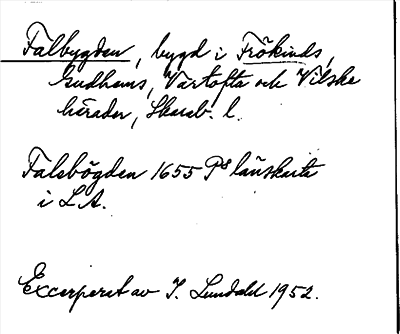 Falbygden, bygd i Frökinds,
Gudhems, Vartofta och Vilske
härader, Skarab. l.
Falsbögden 1655 Ps länskarta
i L.A.
Excerperat av I. Lundahl 1952.